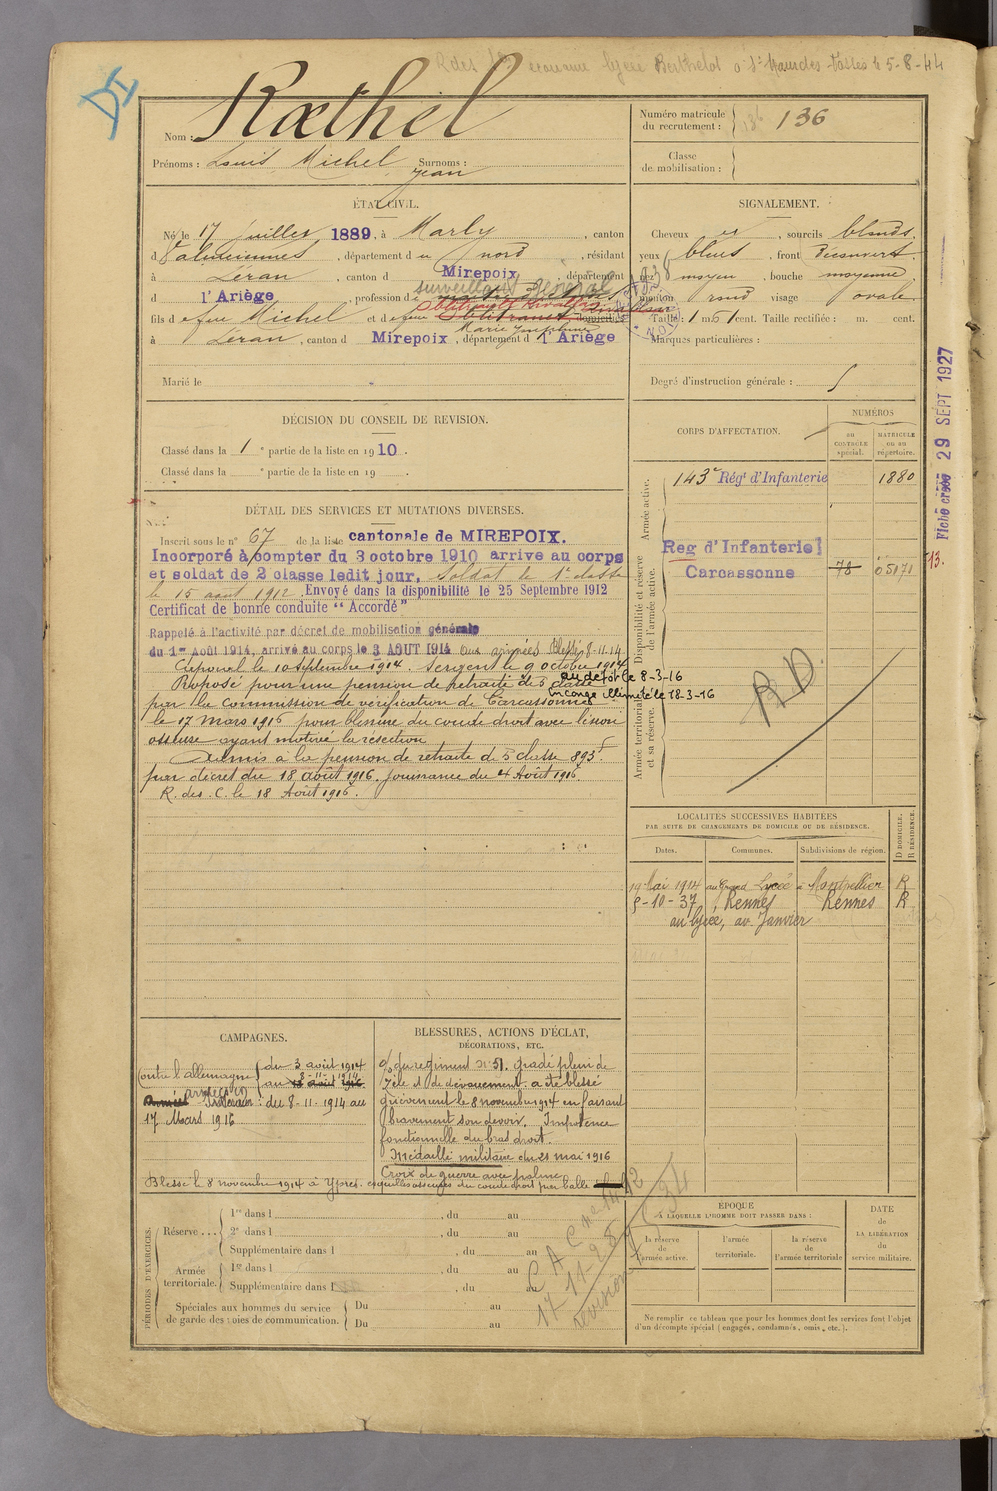 économe lycée Berthelot à St Maur des 5-8-44
Nom : Rœthel
Prénoms : Louis Michel Jean Surnoms :
Numéro matricule du recrutement : 136
Classe de mobilisation :
ÉTAT CIVIL.
Né le 17 juillet 1889, à Marly, canton
d , département du nord, résidant
à Léran, canton d Mirepoix, département
d l'Ariège, profession de surveillant général
fils de feu Michel et de feue
Marie Joséphine
à Léran, canton d Mirepoix, département d l'Ariège
Marié le
SIGNALEMENT.
Cheveux et , sourcils blonds.
yeux bleus , front découvert.
nez moyen , bouche moyenne
menton rond visage ovale
Taille : 1 m. 51 cent. Taille rectifiée : m. cent.
Marques particulières :
Degré d'instruction générale :
DÉCISION DU CONSEIL DE REVISION.
Classé dans la 1e partie de la liste en 1910.
Classé dans la e partie de la liste en 19 .
DÉTAIL DES SERVICES ET MUTATIONS DIVERSES.
Inscrit sous le n° 67 de la liste cantonale de MIREPOIX.
Incorporé à compter du 3 octobre 1910 arrive au corps
et soldat de 2 classe ledit jour, Soldat de 1e classe
le 15 août 1912. Envoyé dans la disponibilité le 25 Septembre 1912
Certificat de bonne conduite "Accordé"
Rappelé à l'activité par décret de mobilisation générale
du 1er Août 1914, arrivé au corps le 3 AOUT 1914 aux armées Blessé 8-11-14
Caporal le 10 septembre 1914. Sergent le 9 octobre 1914
au dépôt le 8-3-16
Proposé pour une pension de retraite de 5 classe
En congé illimité le 18-3-16
par la commission de vérification de Carcassonne
le 17 mars 1916 pour blessure du coude droit avec lésion
osseuse ayant motivé la résection
Admis à la pension de retraite de 5 classe 893f
par décret du 18 août 1916. Jouissance du 4 Août 1916
R. des C. le 18 Août 1916.
CORPS D'AFFECTATION.
NUMÉROS
au CONTRÔLE spécial.
MATRICULE ou au répertoire.
Armée active.
143e Régt d'Infanterie 1880
Disponibilité et réserve de l'armée active.
Reg d'Infanterie
Carcassonne 78 05171
Armée territoriale et sa réserve.
RD.
Fiche créée 29 SEPT 1927
13.
LOCALITÉS SUCCESSIVES HABITÉES
PAR SUITE DE CHANGEMENTS DE DOMICILE OU DE RÉSIDENCE.
Dates. Communes. Subdivisions de région. D DOMICILE. R RÉSIDENCE.
19 Mai 1914 au Grand Lycée à Montpellier R
5-10-37 Rennes Rennes R
au lycée, av. Janvier
CAMPAGNES.
Contre l'allemagne du 3 août 1914
8-11-1914
au 13 août 1916
armées
Intérieur : du 8-11-1914 au
17 Mars 1916
BLESSURES, ACTIONS D'ÉCLAT,
DÉCORATIONS, ETC.
du régiment n° 51. Gradé plein de
zèle et de dévouement a été blessé
grièvement le 8 novembre 1914 en faisant
bravement son devoir. Impotence
fonctionnelle du bras droit.
Médaille militaire du 21 mai 1916
Croix de guerre avec palme
Blessé le 8 novembre 1914 à Ypres. esquilles osseuses du coude droit par balle
PÉRIODES D'EXERCICES.
Réserve... 1re dans l , du au
2e dans l , du au
Supplémentaire dans l , du au
Armée territoriale. 1re dans l , du au
Supplémentaire dans l , du au
Spéciales aux hommes du service de garde des voies de communication. Du au
Du au
17-11-28
révision
ÉPOQUE
À LAQUELLE L'HOMME DOIT PASSER DANS :
la réserve de l'armée active.
l'armée territoriale.
la réserve de l'armée territoriale
DATE
DE
LA LIBÉRATION
du
service militaire.
Ne remplir ce tableau que pour les hommes dont les services font l'objet
d'un décompte spécial (engagés, condamnés, omis, etc.).